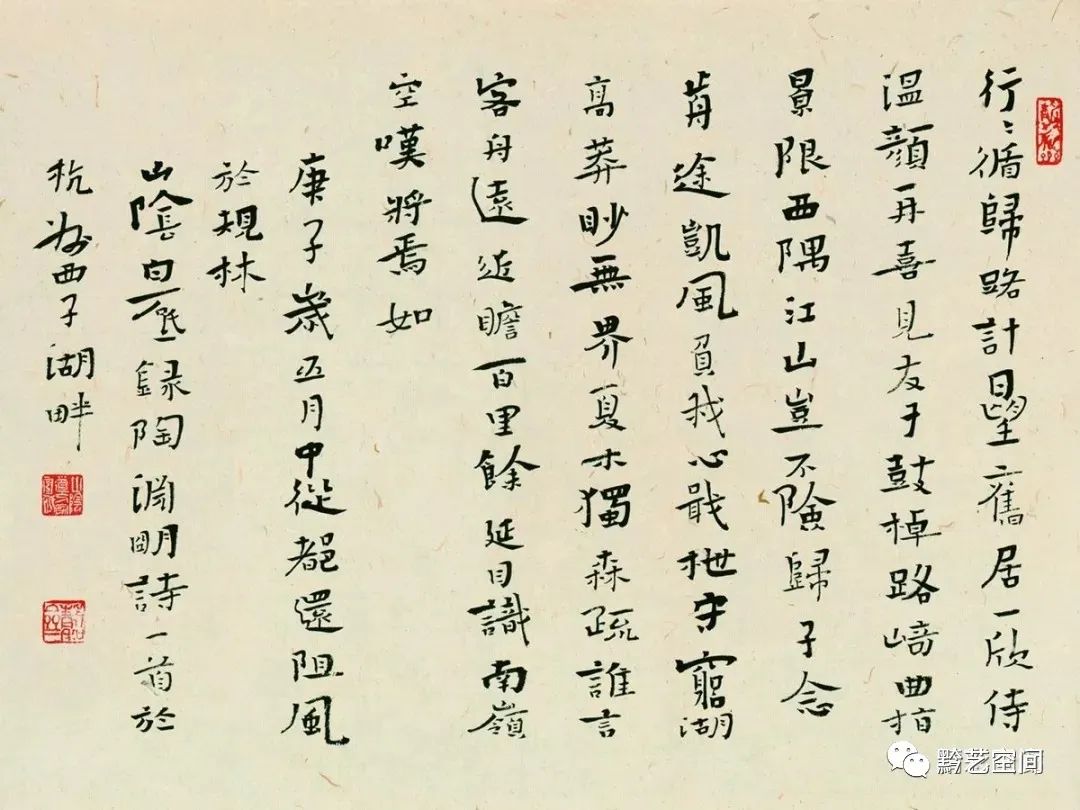 行〻循歸路計日望舊居一欣侍
溫顔再喜見友于鼓棹路崎曲指
景限西隅江山豈不險歸子念
前途凱風負我心戢枻守窮湖
高莽眇無界夏木獨森疏誰言
客舟遠近瞻百里餘延目識南嶺
空嘆將焉如
庚子歲五月中從都還阻風
於規林
山陰白砥録陶淵明詩一首於
杭州西子湖畔
黔艺空间